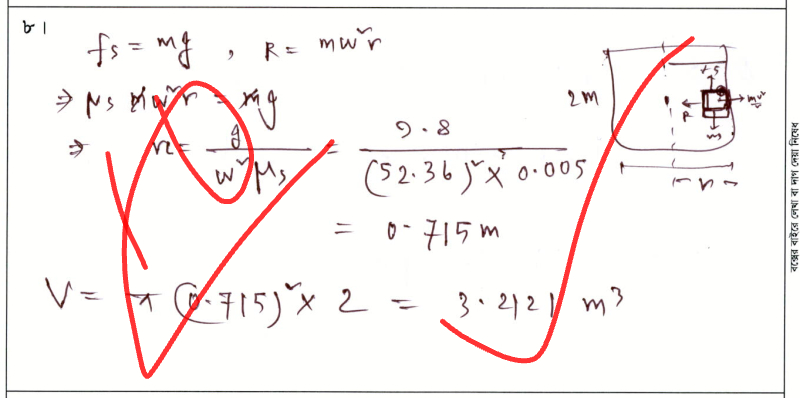 ৮।
fs = mg , R = mω²r
⇒ μs mω²r = mg
⇒ r = g / ω²μs = 9.8 / (52.36)² × 0.005
= 0.715 m
V = π (0.715)² × 2 = 3.2121 m³
2m
fs
R
mω²r
m
r
বক্সের বাইরে লেখা বা দাগ দেয়া নিষেধ